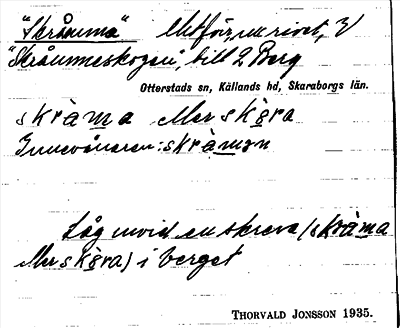 "Skråmma" Utförsgrivet, V
"Skråmmeskogen", till 2 Berg
Otterstads sn, Kållands hd, Skaraborgs län.
skràma eller skøra
Innevånaren: skràmon
Låg invid en skreva (skràma
eller skøra) i berget
THORVALD JONSSON 1935.